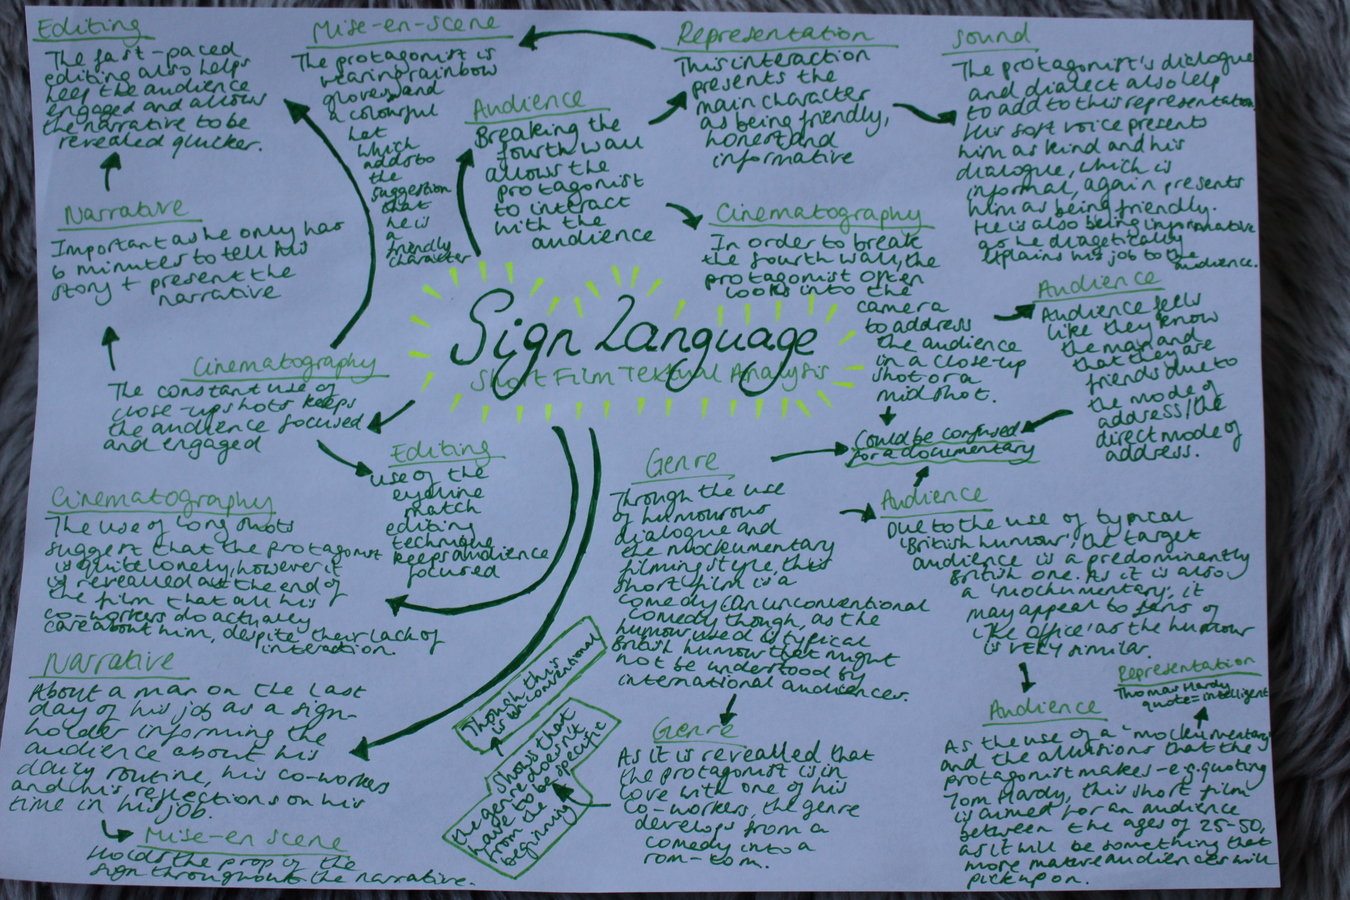 Sign Language
Short Film Textual Analysis
Editing
The fast-paced
editing also helps
keep the audience
engaged and allows
the narrative to be
revealed quicker.
Narrative
Important as he only has
6 minutes to tell his
story + present the
narrative
Cinematography
The constant use of
close-up shots keeps
the audience focused
and engaged
Editing
use of the
eyeline
match
editing
technique
keeps audience
focused
Cinematography
The use of long shots
suggest that the protagonist
is quite lonely, however it
is revealled at the end of
the film that all his
co-workers do actually
care about him, despite their lack of
interaction.
Narrative
About a man on the last
day of his job as a sign-
holder informing the
audience about his
daily routine, his co-workers
and his reflections on his
time in his job.
Mise-en scene
Holds the prop of the
sign throughout the narrative.
Mise-en-scene
The protagonist is
wearing rainbow
gloves and
a colourful
hat
which
adds to
the
suggestion
that
he is
a
friendly
character
Audience
Breaking the
fourth wall
allows the
protagonist
to interact
with the
audience
Representation
This interaction
presents the
main character
as being friendly,
honest and
informative
Sound
The protagonist's dialogue
and dialect also help
to add to this representation
His soft voice presents
him as kind and his
dialogue, which is
informal, again presents
him as being friendly.
He is also being informative
as he diagetically
explains his job to the
audience.
Cinematography
In order to break
the fourth wall, the
protagonist often
looks into the
camera
to address
the audience
in a close-up
shot or a
mid shot.
Audience
Audience feels
like they know
the man and
that they are
friends due to
the mode of
address/the
direct mode of
address.
Could be confused
for a documentary
Genre
Through the use
of humourous
dialogue and
the mockumentary
filming style, this
short film is a
comedy (An unconventional
comedy though, as the
humour used is typical
British humour that might
not be understood by
international audiences.
Audience
Due to the use of typical
'British humour', the target
audience is a predominantly
British one. As it is also
a 'mockumentary', it
may appeal to fans of
'The Office' as the humour
is very similar.
Genre
As it is revealled that
the protagonist is in
love with one of his
co-workers, the genre
develops from a
comedy into a
rom-com.
Shows that
the genre doesn't
have to be specific
from the
beginning
Though this
is unconventional
Audience
As the use of a 'mockumentary'
and the allusions that the
protagonist makes - e.g. quoting
Tom Hardy, this short film
is aimed for an audience
between the ages of 25-50,
as it will be something that
more mature audiences will
pick up on.
Representation
Thomas Hardy
quote = intelligent